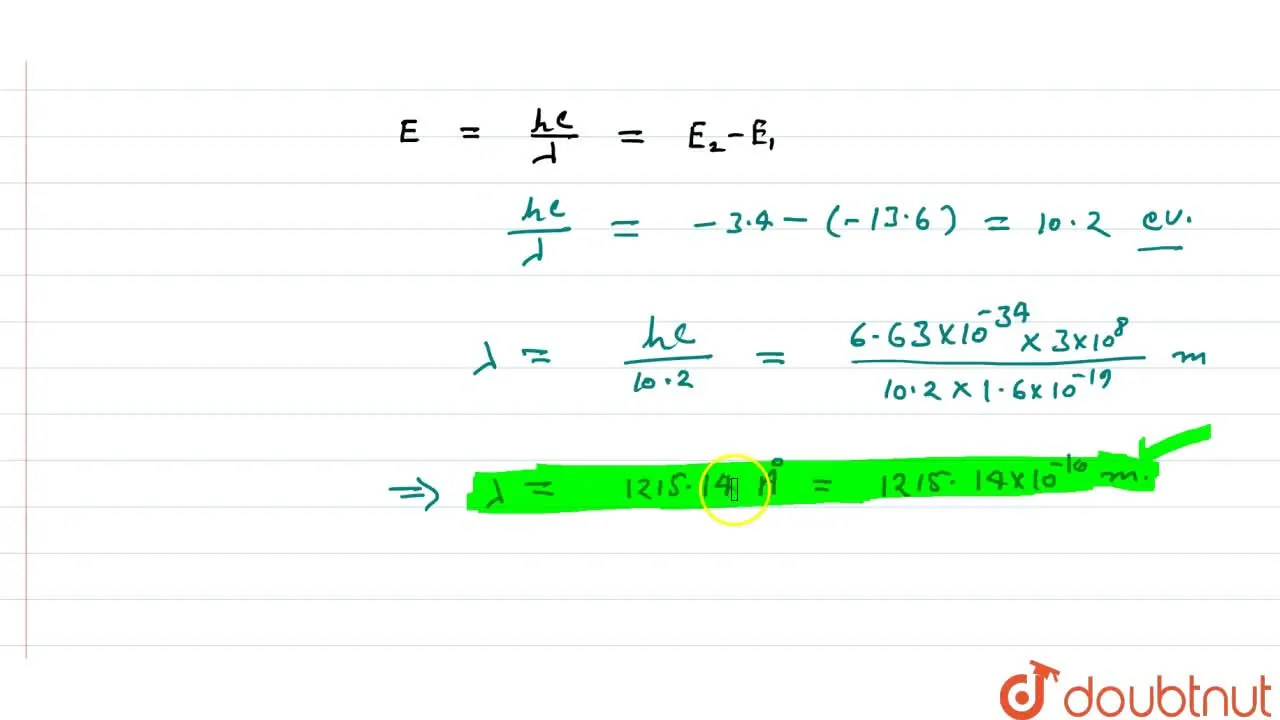 E = hc/λ = E₂ - E₁
hc/λ = -3.4 - (-13.6) = 10.2 eV.
λ = hc/10.2 = 6.63×10⁻³⁴ × 3×10⁸ / 10.2 × 1.6×10⁻¹⁹ m
⇒ λ = 1215.14 Å = 1215.14×10⁻¹⁰ m.
doubtnut